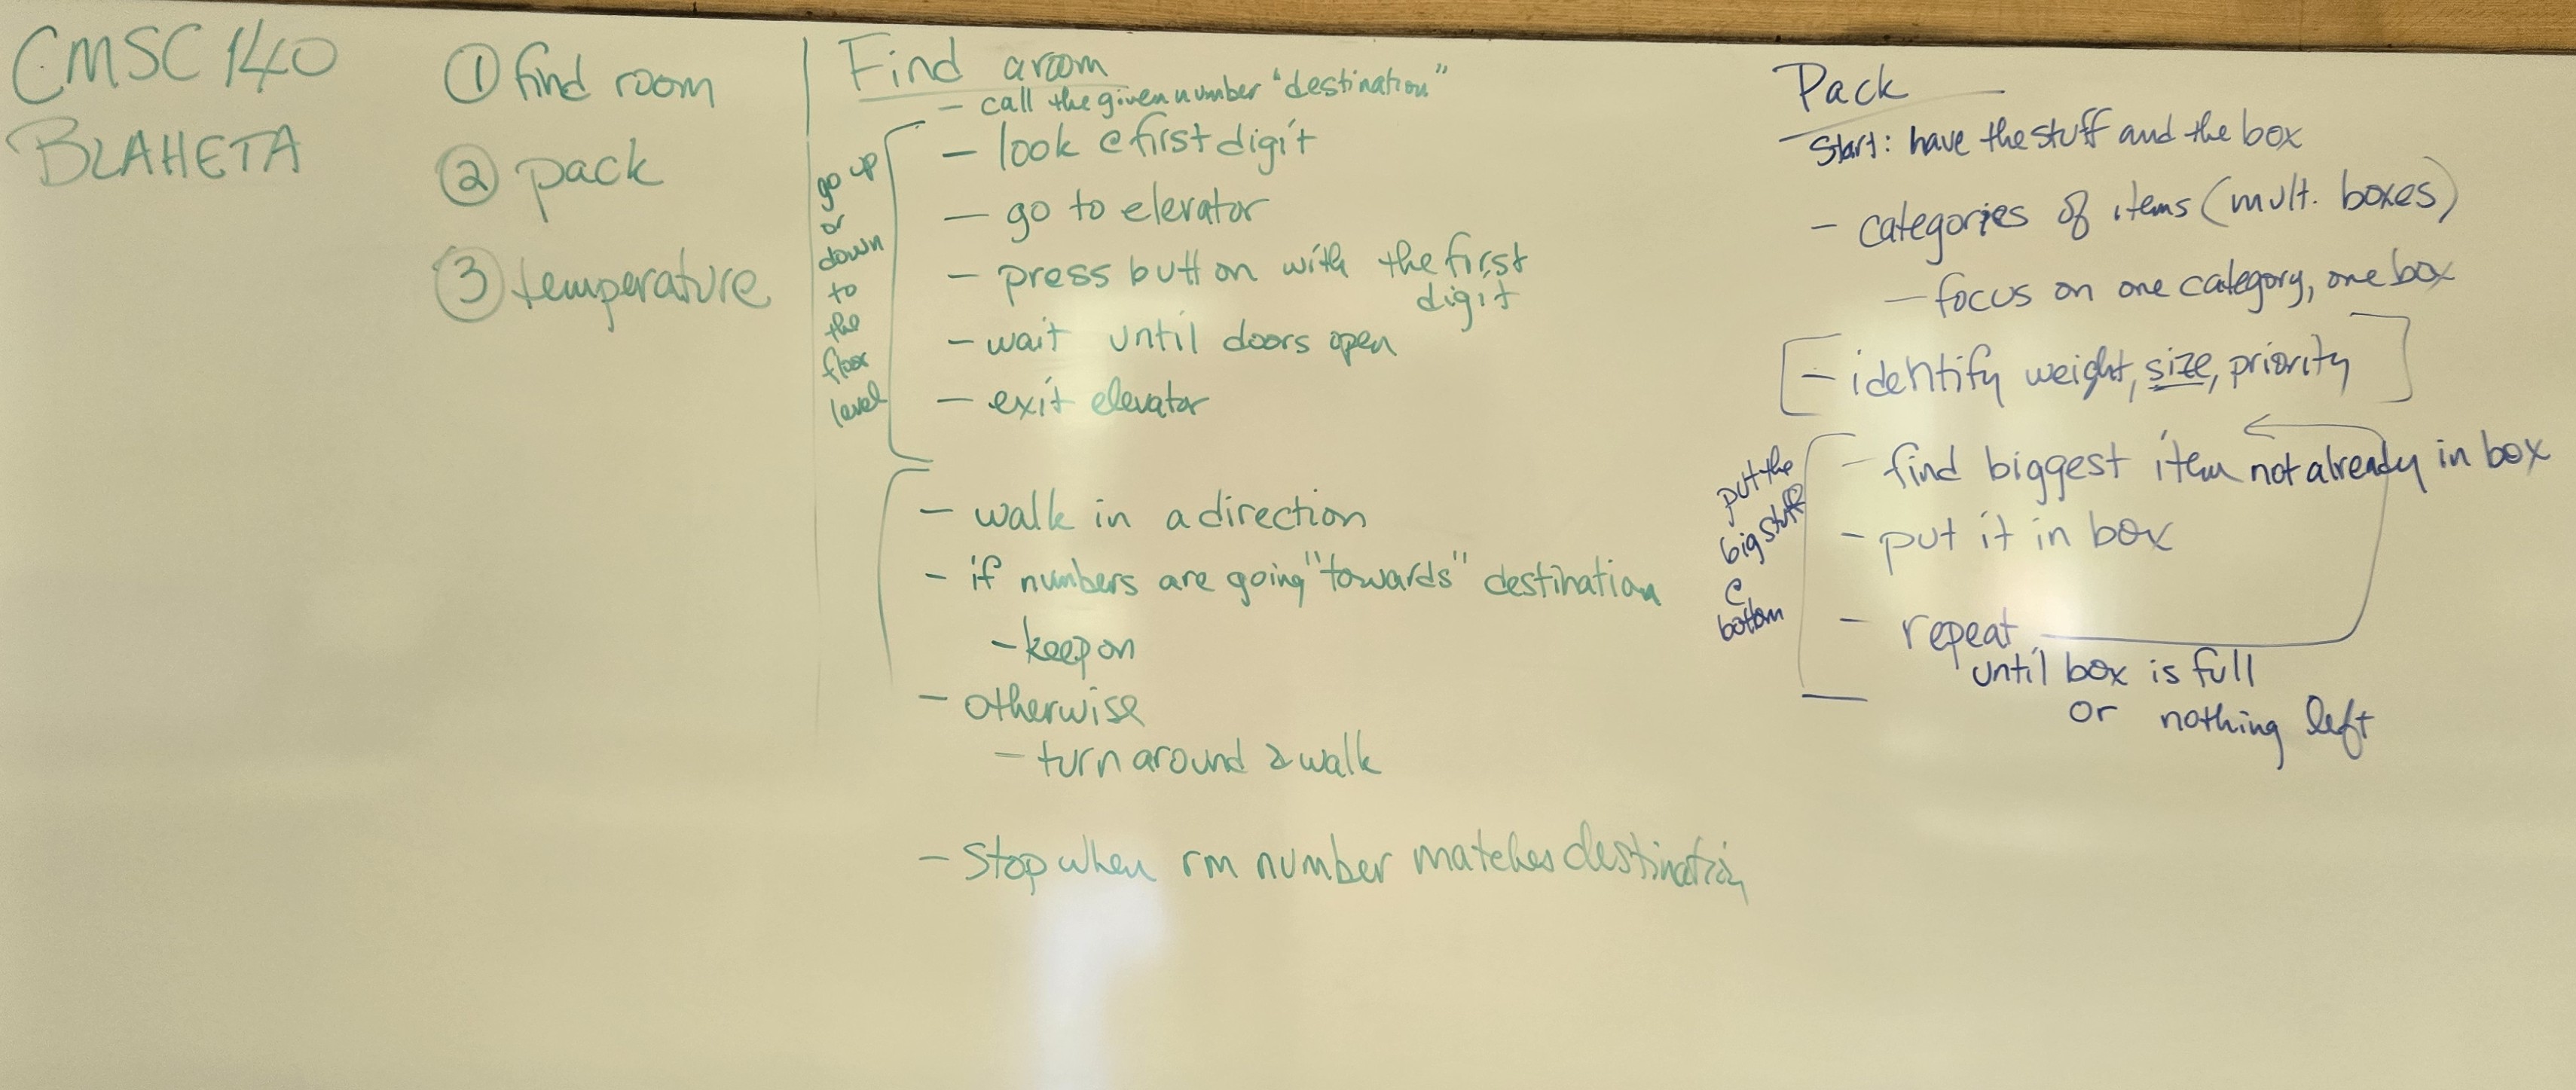 CMSC 140
BLAHETA
① find room
② pack
③ temperature
Find a room
- call the given number "destination"
go up
or
down
to
the
floor
level
- look @ first digit
- go to elevator
- press button with the first
digit
- wait until doors open
- exit elevator
- walk in a direction
- if numbers are going "towards" destination
- keep on
- otherwise
- turn around & walk
- Stop when rm number matches destination
Pack
Start: have the stuff and the box
- categories of items (mult. boxes)
- focus on one category, one box
- identify weight, size, priority
put the
big stuff
@
bottom
- find biggest item not already in box
- put it in box
- repeat
until box is full
or nothing left